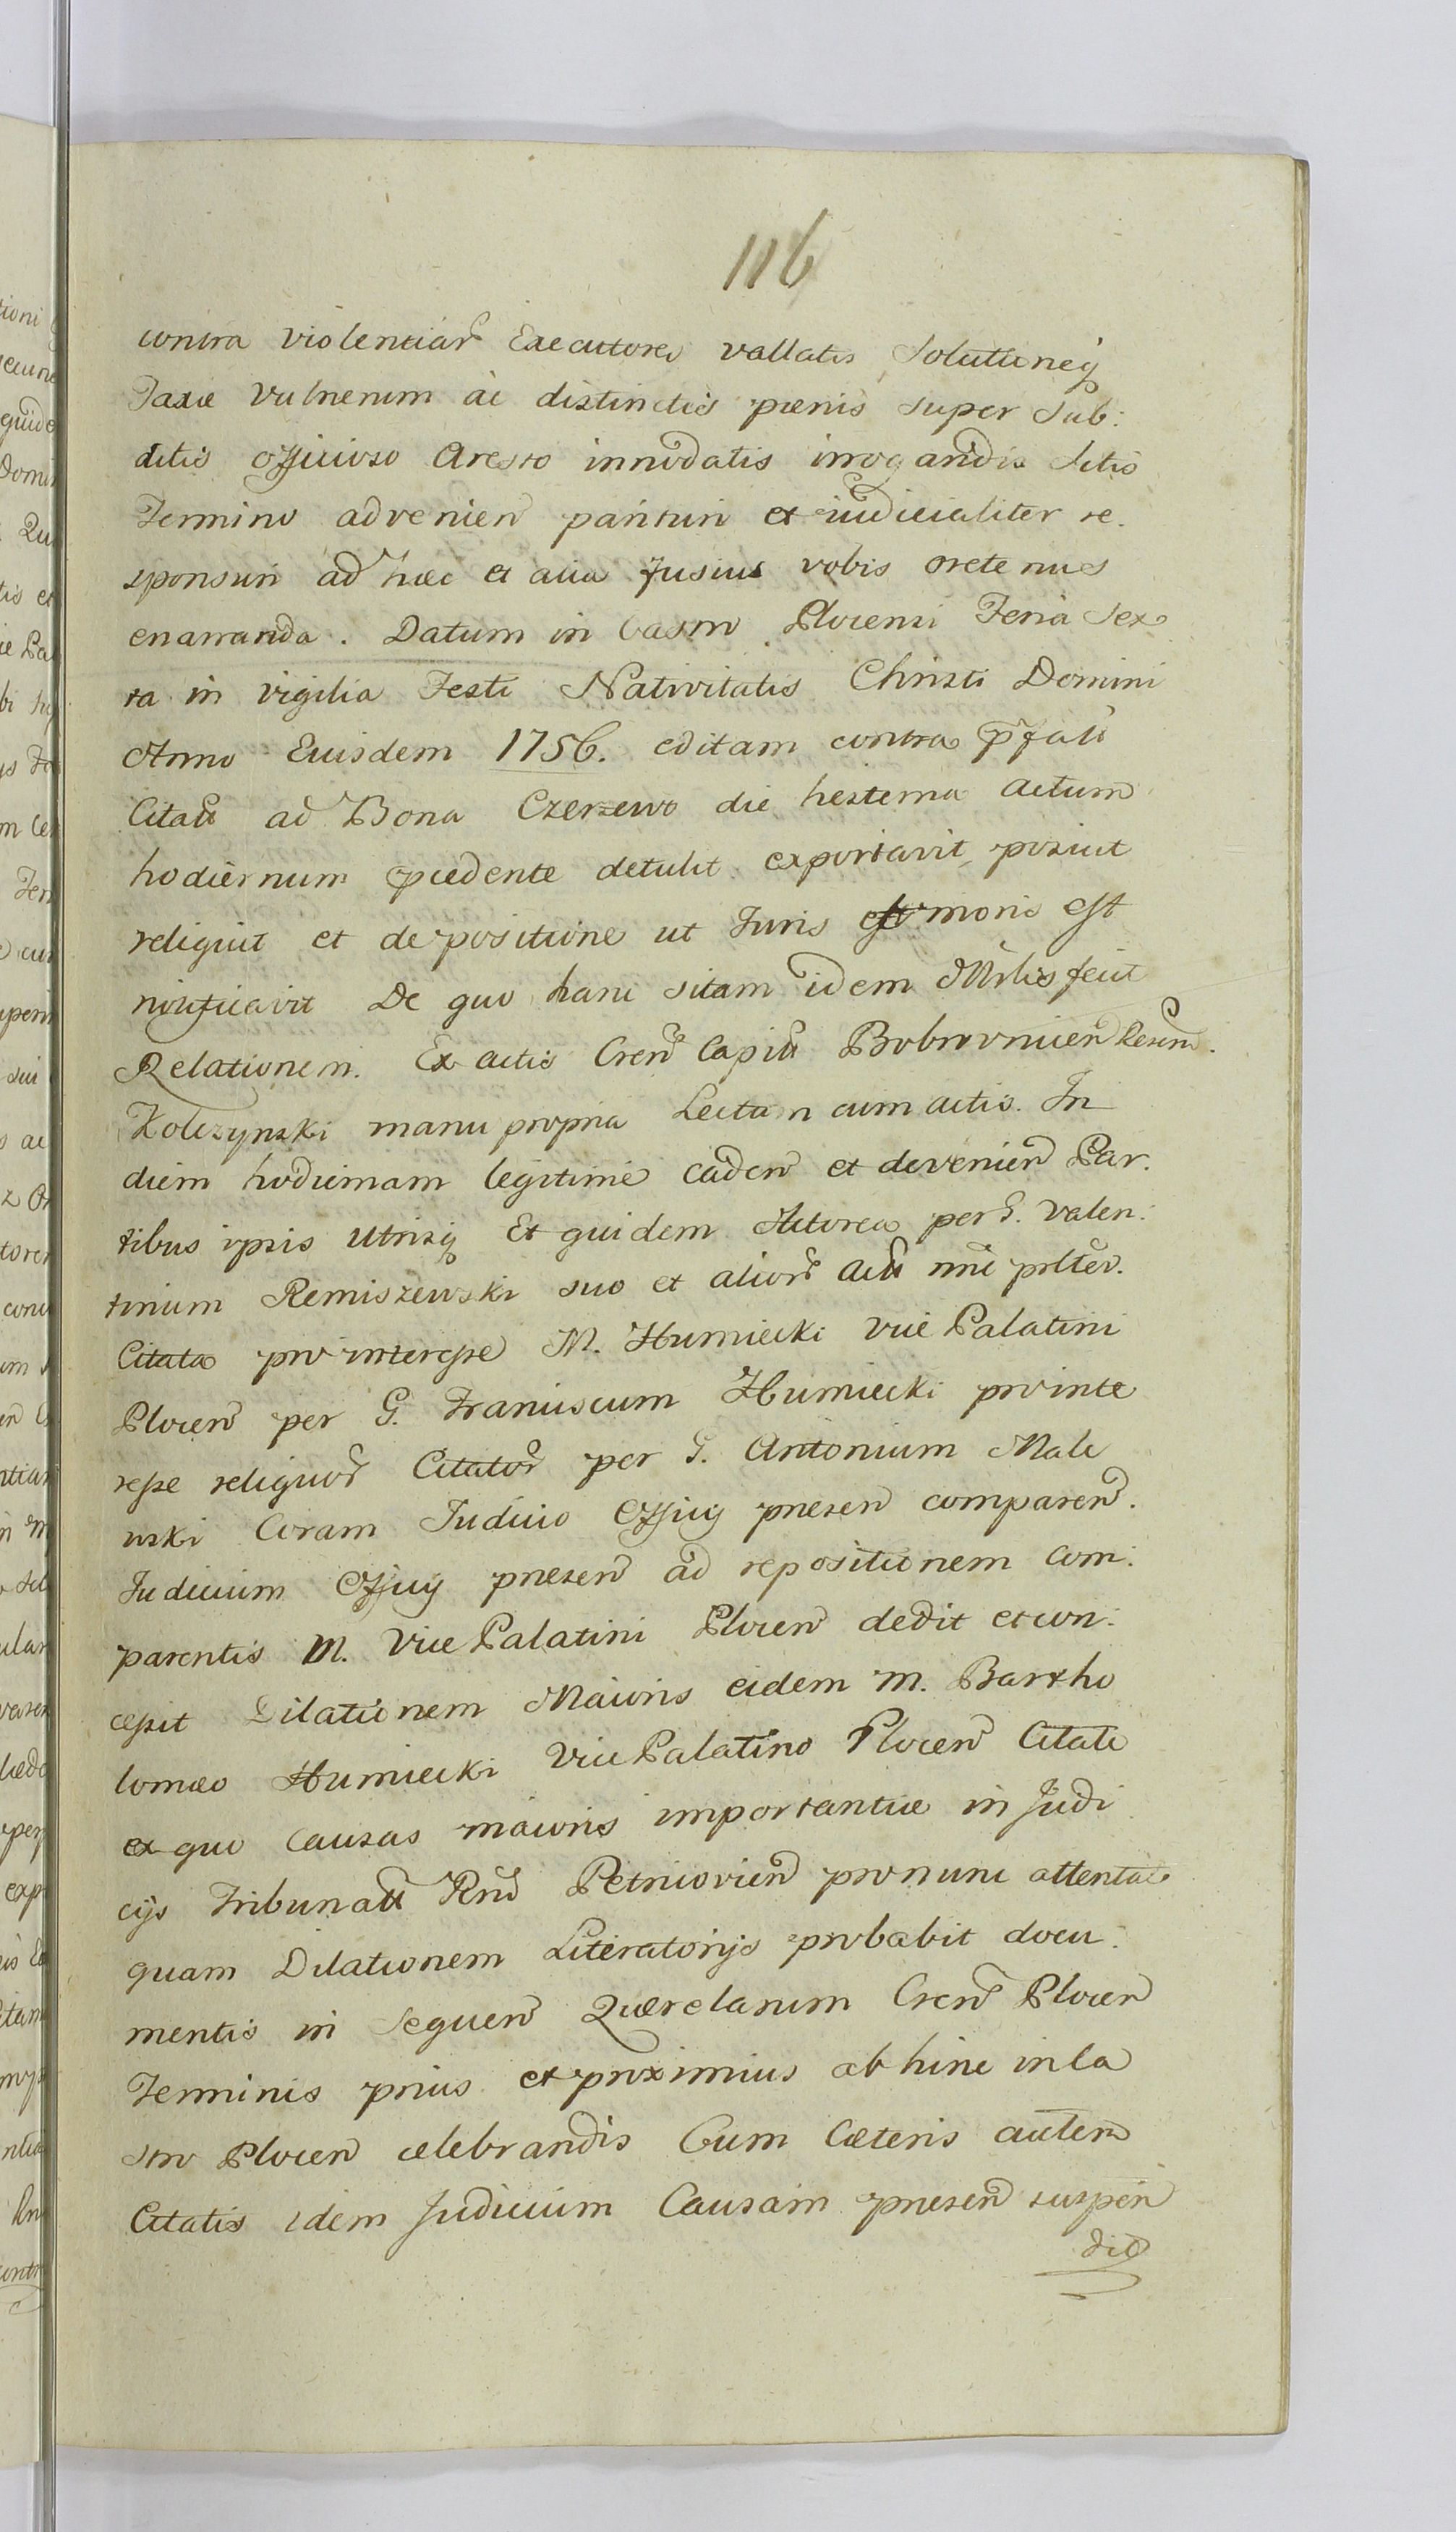 116
contra violentiar Executores vallatis Solutioneq
Taxæ Vulnerum ac distinctis pœnis super Sub:
ditis officioso Aresto innodatis irrogandis sitis
Termino advenien parituri et iudicialiter re.
sponsuri ad hæc et alia fusius vobis oretenus
enarranda. Datum in Castro Plocensi Feria Sex
ta in vigilia Festi Nativitatis Christi Domini
Anno Eiusdem 1756. editam contra pfati
Citati ad Bona Czerzewo die hesterna actum
hodiernum pcedente detulit exportavit posuit
reliquit et depositione ut Juris moris est
notificavit De quo hanc sitam idem Mrlis fecit
Relationem. Ex actis Cren Capitu Bobrovnicen Resen.
Zolczynski manu propria Lectam cum actis. In
diem hodiernam legitime caden et devenien Par.
tibus ipsis Utrisq Et quidem Actorea per G. Valen:
tinum Remiszewski suo et alior Actu nne prlter.
Citata pro interesse M. Humiecki Vice Palatini
Plocen per G. Franciscum Humiecki pro inte
resse reliquor Citator per G. Antonium Male
wski Coram Judicio Officij presen comparen.
Judicium Officij presen ad repositionem com:
parentis M. Vice Palatini Plocen dedit et con:
cessit Dilationem Maioris eidem M. Bartho
lomæo Humiecki Vice Palatino Plocen Citati
ex quo Causas maioris importantiæ in Judi
cijs Tribunatu Rni Petricovien pronunc attentat
quam Dilationem Literatorijs probabit docu:
mentis in sequen Quærelarum Cren Plocen
Terminis prius et proximius abhinc in Ca
stro Plocen celebrandis Cum Cæteris autem
Citatis idem Judicium Causam presen suspen
dit